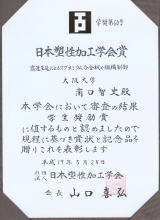 学奨第60号
日本塑性加工学会賞
大阪大学
南口智史殿
本学会において審査の結果
学生奨励賞
に値するものと認めましたので
規程に基づき賞状と記念品を
贈りこれを表彰します
平成19年5月25日
社団法人 日本塑性加工学会
会長 山口喜弘